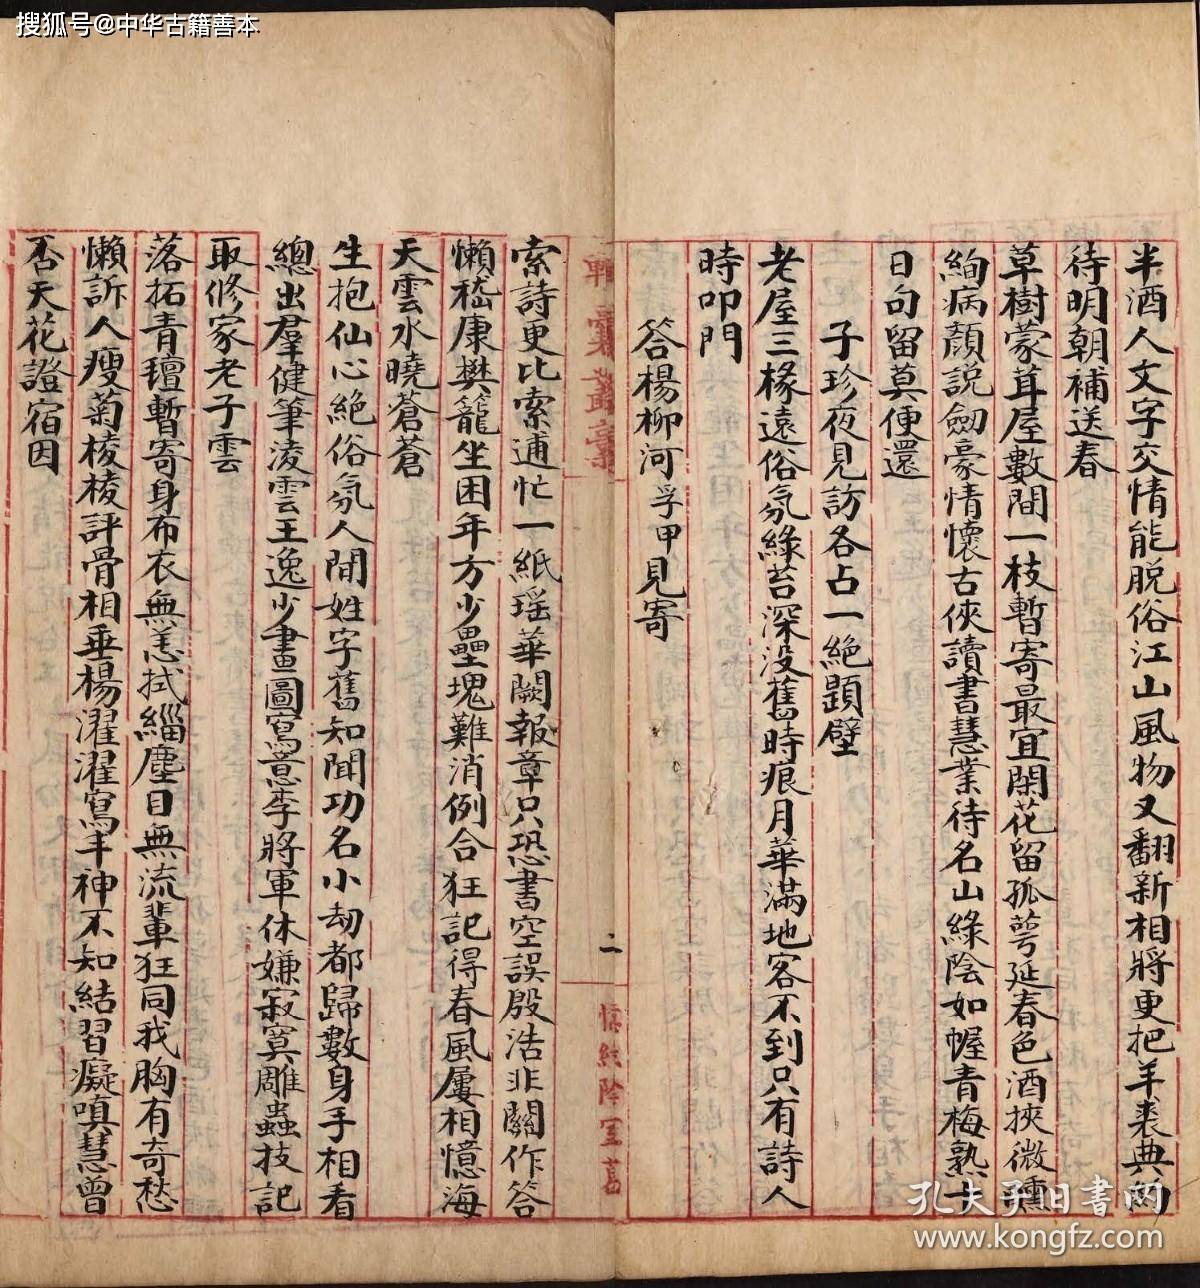 搜狐号@中华古籍善本
半酒人文字交情能脱俗江山風物又翻新相將更把羊裘典約
待明朝補送春
草樹蒙茸屋數間一枝暫寄最宜閑花留孤萼延春色酒挾微醺
絢病顏說劔豪情懷古俠讀書慧業待名山綠陰如幄青梅熟十
日句留莫便還
子珍夜見訪各占一絕題壁
老屋三椽遠俗氛綠苔深没舊時痕月華滿地客不到只有詩人
時叩門
答楊柳河孚甲見寄
二
索詩更比索逋忙一紙瑶華闕報章只恐書空誤殷浩非關作答
懶嵇康樊籠坐困年方少壘塊難消例合狂記得春風屢相憶海
天雲水曉蒼蒼
生抱仙心絕俗氛人間姓字舊知聞功名小劫都歸數身手相看
總出羣健筆淩雲王逸少畫圖寫意李將軍休嫌寂寞雕蟲技記
取修家老子雲
落拓青氊暫寄身布衣無恙拭緇塵目無流輩狂同我胸有奇愁
懶訴人瘦菊棱棱評骨相垂楊濯濯寫丰神不知結習癡嗔慧曾
否天花證宿因
孔夫子旧书网
www.kongfz.com